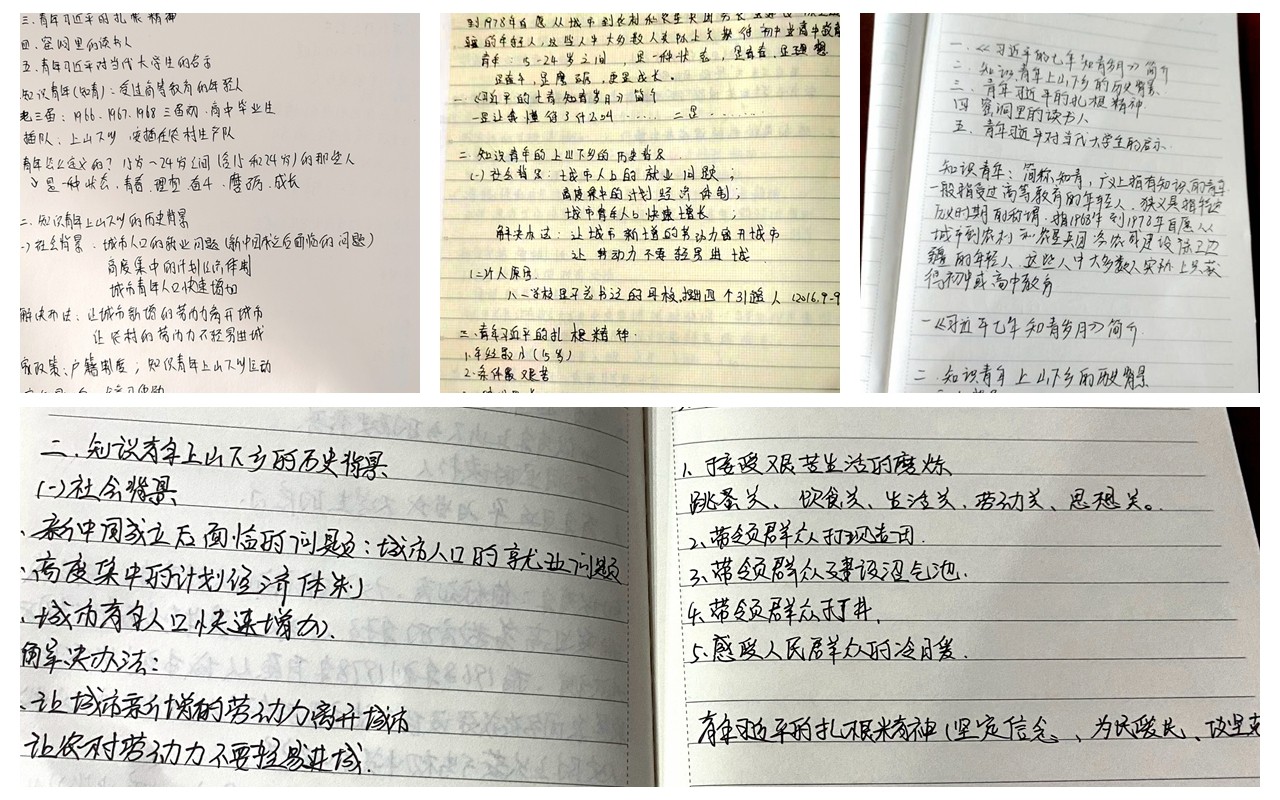 三.青年习近平的扎根精神
四.窑洞里的读书人
五.青年习近平对当代大学生的启示
知识青年(知青)：受过高等教育的年轻人
老三届：1966、1967、1968 三届初、高中毕业生
插队：上山下乡 安插在农村生产队
青年怎么定义的? 15岁~24岁之间(含15和24岁)的那些人
是一种状态、青春、理想、奋斗、磨砺、成长
二、知识青年上山下乡的历史背景
社会背景：城市人口的就业问题(新中国成立后面临的问题)
高度集中的计划经济体制
城市青年人口快速增加
解决办法：让城市新增的劳动力离开城市
让农村的劳动力不轻易进城
政策、户籍制度；知识青年上山下乡运动
到1978年自愿从城市到农村
疆的年轻人,这些人中大多数人实际上只获得初中或高中教育
青年：15-24岁之间,是一种状态,是青春,是理想
是奋斗,是磨砺,更是成长。
一《习近平的七年知青岁月》简介
一是让我懂得了什么叫 …… 二是 ……
二.知识青年的上山下乡的历史背景
(一)社会背景：城市人口的就业问题；
高度集中的计划经济体制；
城市青年人口快速增长；
解决办法：让城市新增的劳动力离开城市
让 劳动力不要轻易进城
(二)个人原因.
三.青年习近平的扎根精神.
1.年纪最小(15岁)
2.条件最艰苦
一.《习近平的七年知青岁月》简介
二.知识青年上山下乡的历史背景
三.青年习近平的扎根精神
四.窑洞里的读书人
五.青年习近平对当代大学生的启示
知识青年：简称知青,广义上指有知识的青年,
一般指受过高等教育的年轻人.狭义是指特定
历史时期的称谓.指1968年到1978年自愿从
城市到农村和农垦兵团务农或建设保卫边
疆的年轻人.这些人中大多数人实际上只获
得初中或高中教育
一《习近平七年知青岁月》简介.
二.知识青年上山下乡的历史背景
二.知识青年上山下乡的历史背景
(一)社会背景
、新中国成立后面临的问题：城市人口的就业问题
、高度集中的计划经济体制
、城市青年人口快速增加.
解决办法：
、让城市新增的劳动力离开城市
让农村劳动力不要轻易进城.
1.接受艰苦生活的磨炼
跳蚤关、饮食关、生活关、劳动关、思想关。
2.带领群众打坝造田.
3.带领群众建设沼气池.
4.带领群众打井.
5.感受人民群众的冷暖.
青年习近平的扎根精神(坚定信念、为民爱民、攻坚克